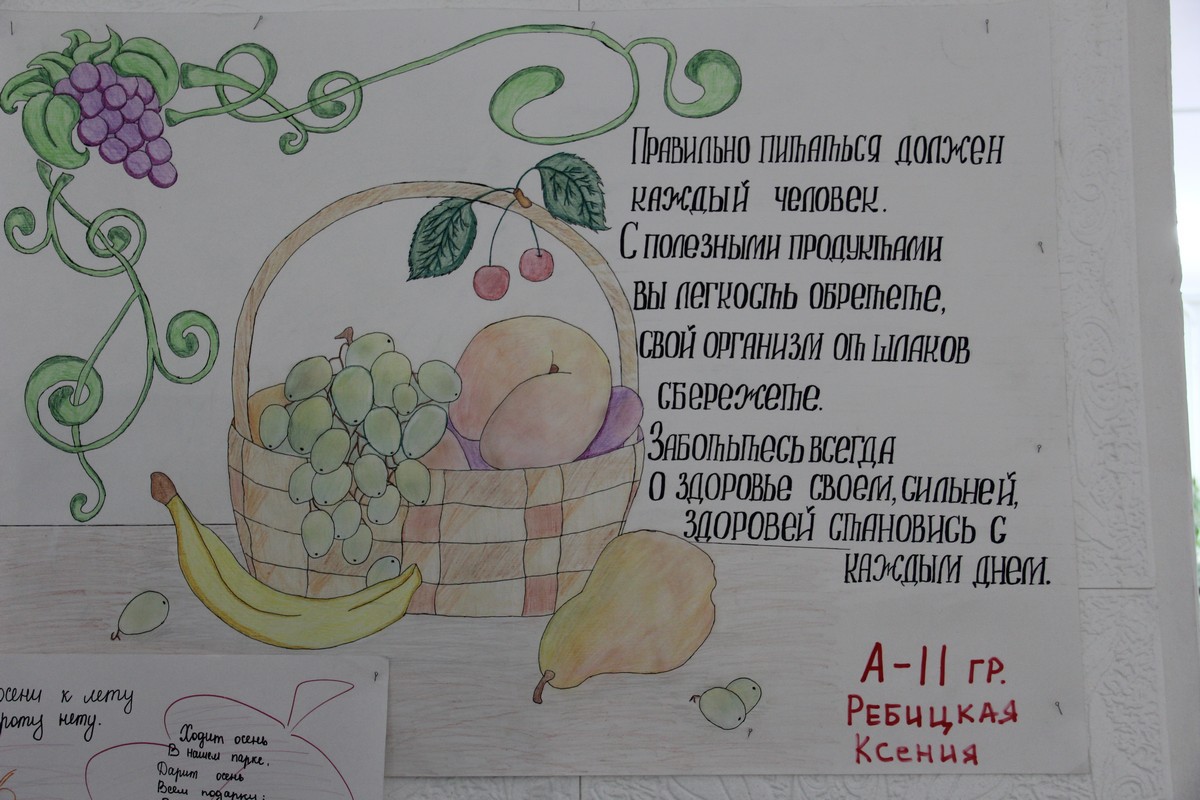 Правильно питаться должен
каждый человек.
С полезными продуктами
вы легкость обретете,
свой организм от шлаков
сбережете.
Заботьтесь всегда
о здоровье своем, сильней,
здоровей становись с
каждым днем.
А-11 гр.
Ребицкая
Ксения
осени к лету
нету.
Ходит осень
В нашем парке,
Дарит осень
Всем подарки: